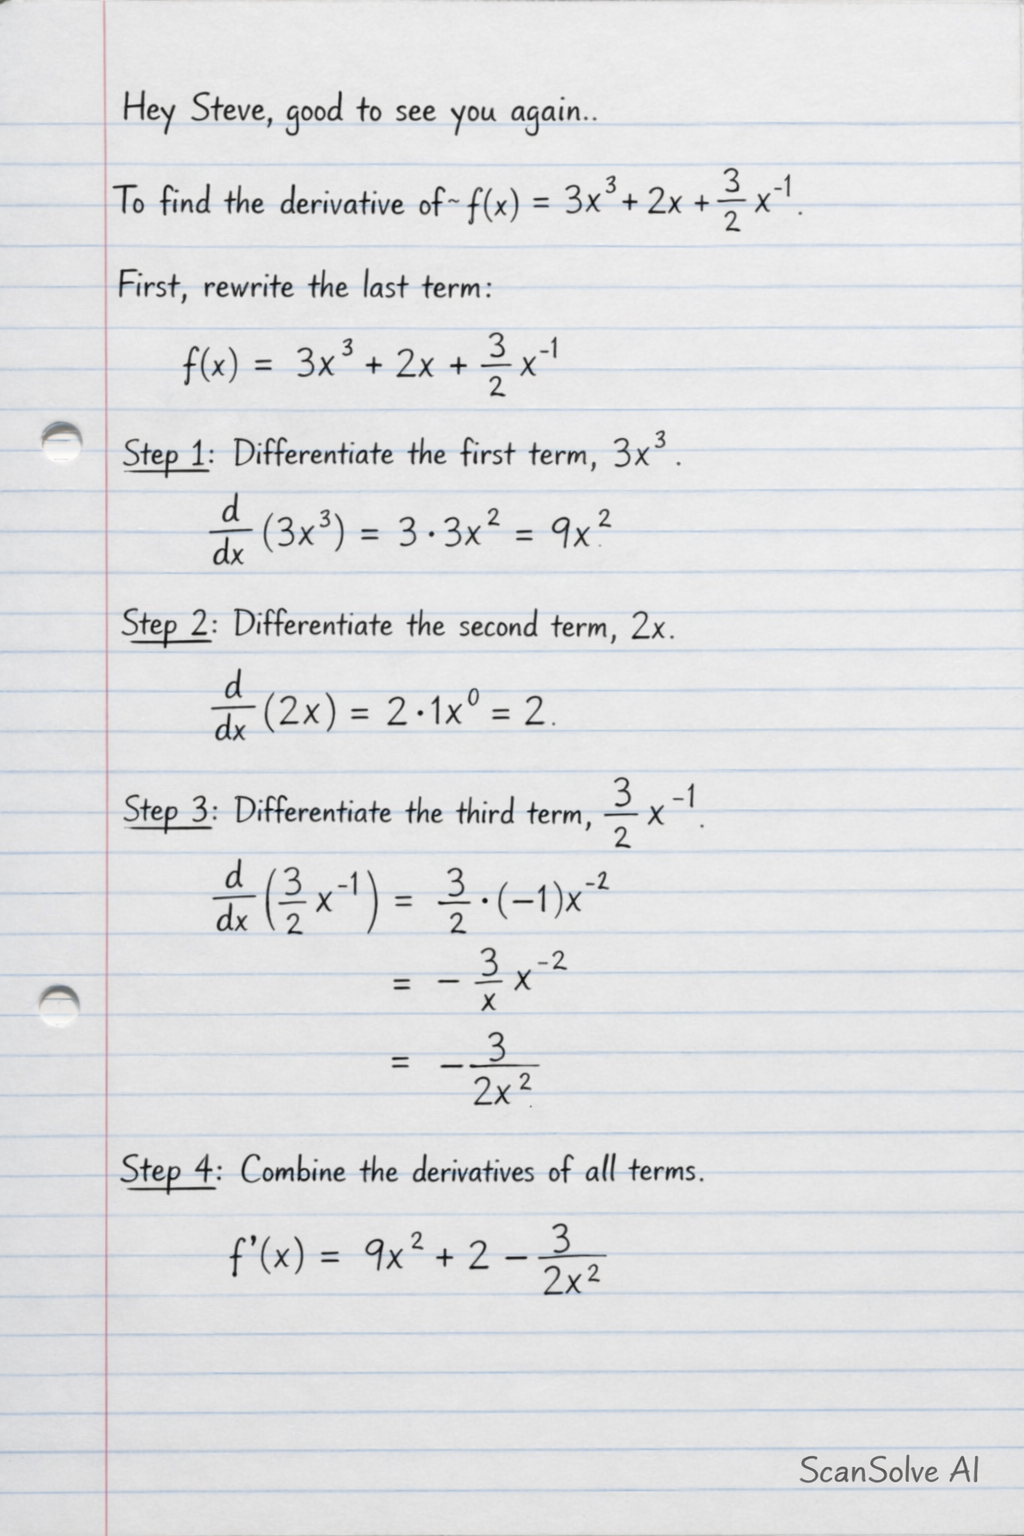 Hey Steve, good to see you again..
To find the derivative of~ f(x) = 3x³ + 2x + 3/2 x⁻¹.
First, rewrite the last term:
f(x) = 3x³ + 2x + 3/2 x⁻¹
Step 1: Differentiate the first term, 3x³.
d/dx (3x³) = 3·3x² = 9x².
Step 2: Differentiate the second term, 2x.
d/dx (2x) = 2·1x⁰ = 2.
Step 3: Differentiate the third term, 3/2 x⁻¹.
d/dx (3/2 x⁻¹) = 3/2 · (−1)x⁻²
= − 3/x x⁻²
= − 3/2x².
Step 4: Combine the derivatives of all terms.
f'(x) = 9x² + 2 − 3/2x²
ScanSolve AI